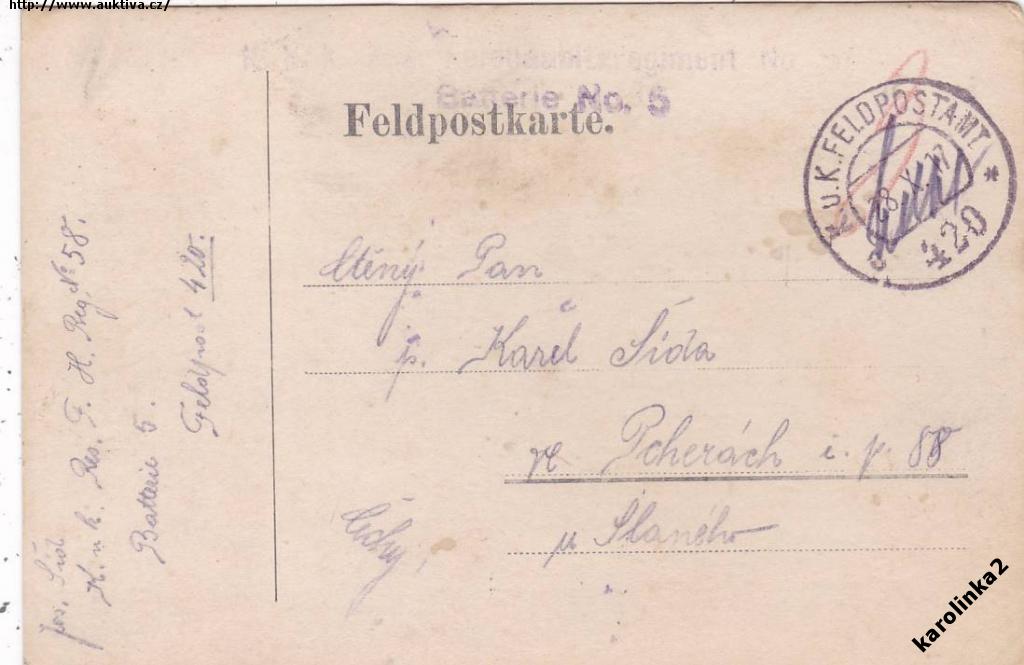 http://www.auktiva.cz/
Batterie No. 5
Feldpostkarte.
K.U.K. FELDPOSTAMT
28.X.17
420
Ctěný Pan
p. Karel Šída
ve Pcherách č. p. 88
u Slaného
Čechy,
Jos. Šíd
K. u. k. Res. F. H. Reg. No 58.
Batterie 5.
Feldpost 420.
karolinka2